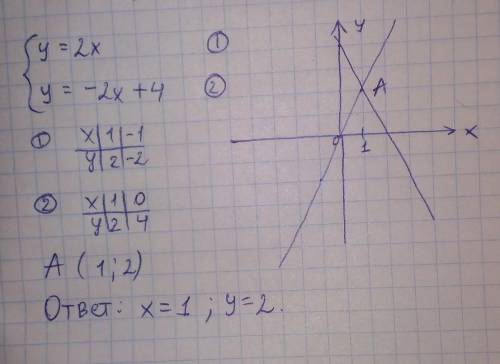 { y = 2x ①
y = -2x + 4 ②
① x | 1 | -1
y | 2 | -2
② x | 1 | 0
y | 2 | 4
A (1; 2)
Ответ: x = 1 ; y = 2.
y
A
0 1 x